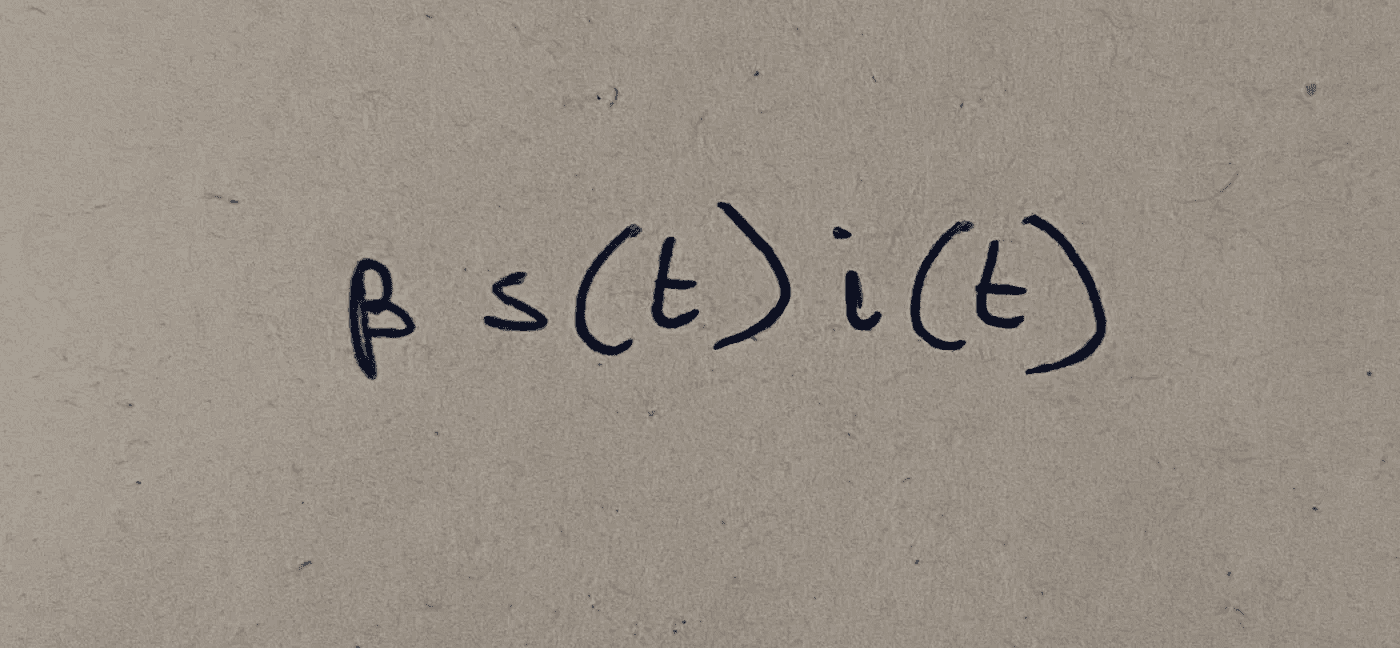 β s(t) i(t)